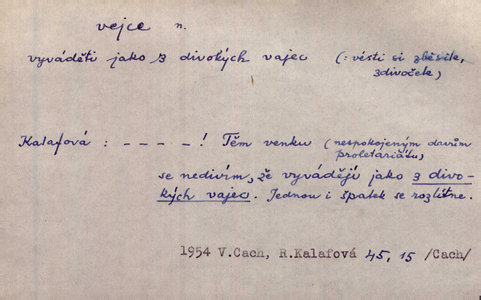 vejce n.
vyváděti jako z divokých vajec (: vésti si zběsile,
zdivočele)
Kalafová : – – – – ! Těm venku (nespokojeným davům
proletariátu)
se nedivím, že vyvádějí jako z divo-
kých vajec. Jednou i špatek se rozlítne.
1954 V.Cach, R.Kalafová 45, 15 /Cach/